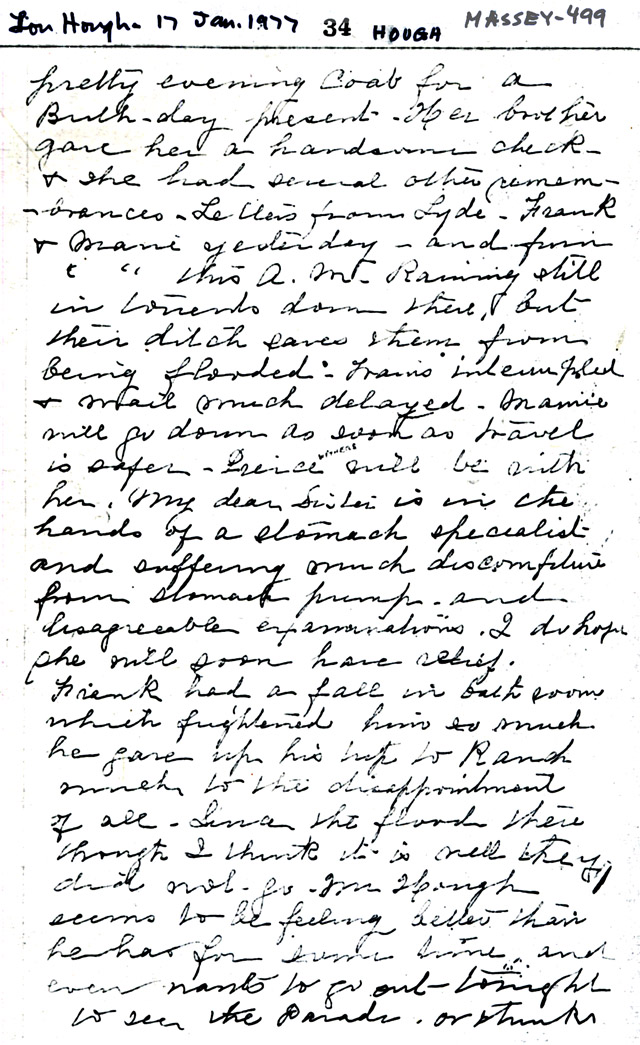 Lon Hough - 17 Jan. 1977 34 HOUGH MASSEY-499
pretty evening Coat for a
Birth-day present - Her brother
gave her a handsome check -
& she had several other remem-
-brances - Letters from Lyde - Frank
& Mamie yesterday - and from
" " this A. M. - Raining still
in torrents down there, but
their ditch saves them from
being flooded - Trains interrupted
& mail much delayed - Mamie
will go down as soon as travel
is safer - Preice will be with
her. My dear Sister is in the
hands of a stomach specialist
and suffering much discomfiture
from stomach pump - and
disagreeable examinations. I do hope
she will soon have relief.
Frank had a fall in bath room
which frightened him so much
he gave up his trip to Ranch
much to the disappointment
of all - Since the flood there
though I think it is well they
did not go - Mr Hough
seems to be feeling better than
he has for some time, and
even wants to go out - tonight
to see the Parade. or thinks